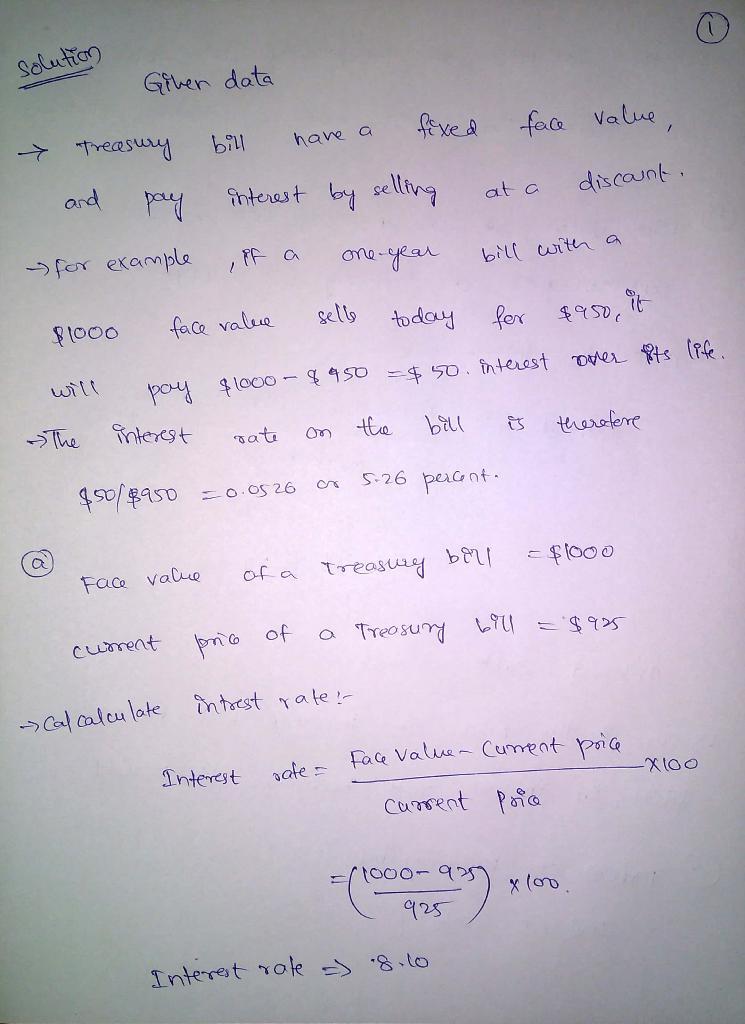 ①
Solution
Given data
→ Treasury bill have a fixed face value,
and pay interest by selling at a discount.
→ for example, if a one-year bill with a
$1000 face value sells today for $950, it
will pay $1000 - $950 = $50. interest over its life.
→ The interest rate on the bill is therefore
$50/$950 = 0.0526 or 5.26 percent.
ⓐ
Face value of a Treasury bill = $1000
current price of a Treasury bill = $925
→ cal calculate intrest rate :-
Interest rate = Face Value - Current price
×100
Current Price
= (1000-925
925) × 100.
Interest rate => 8.10